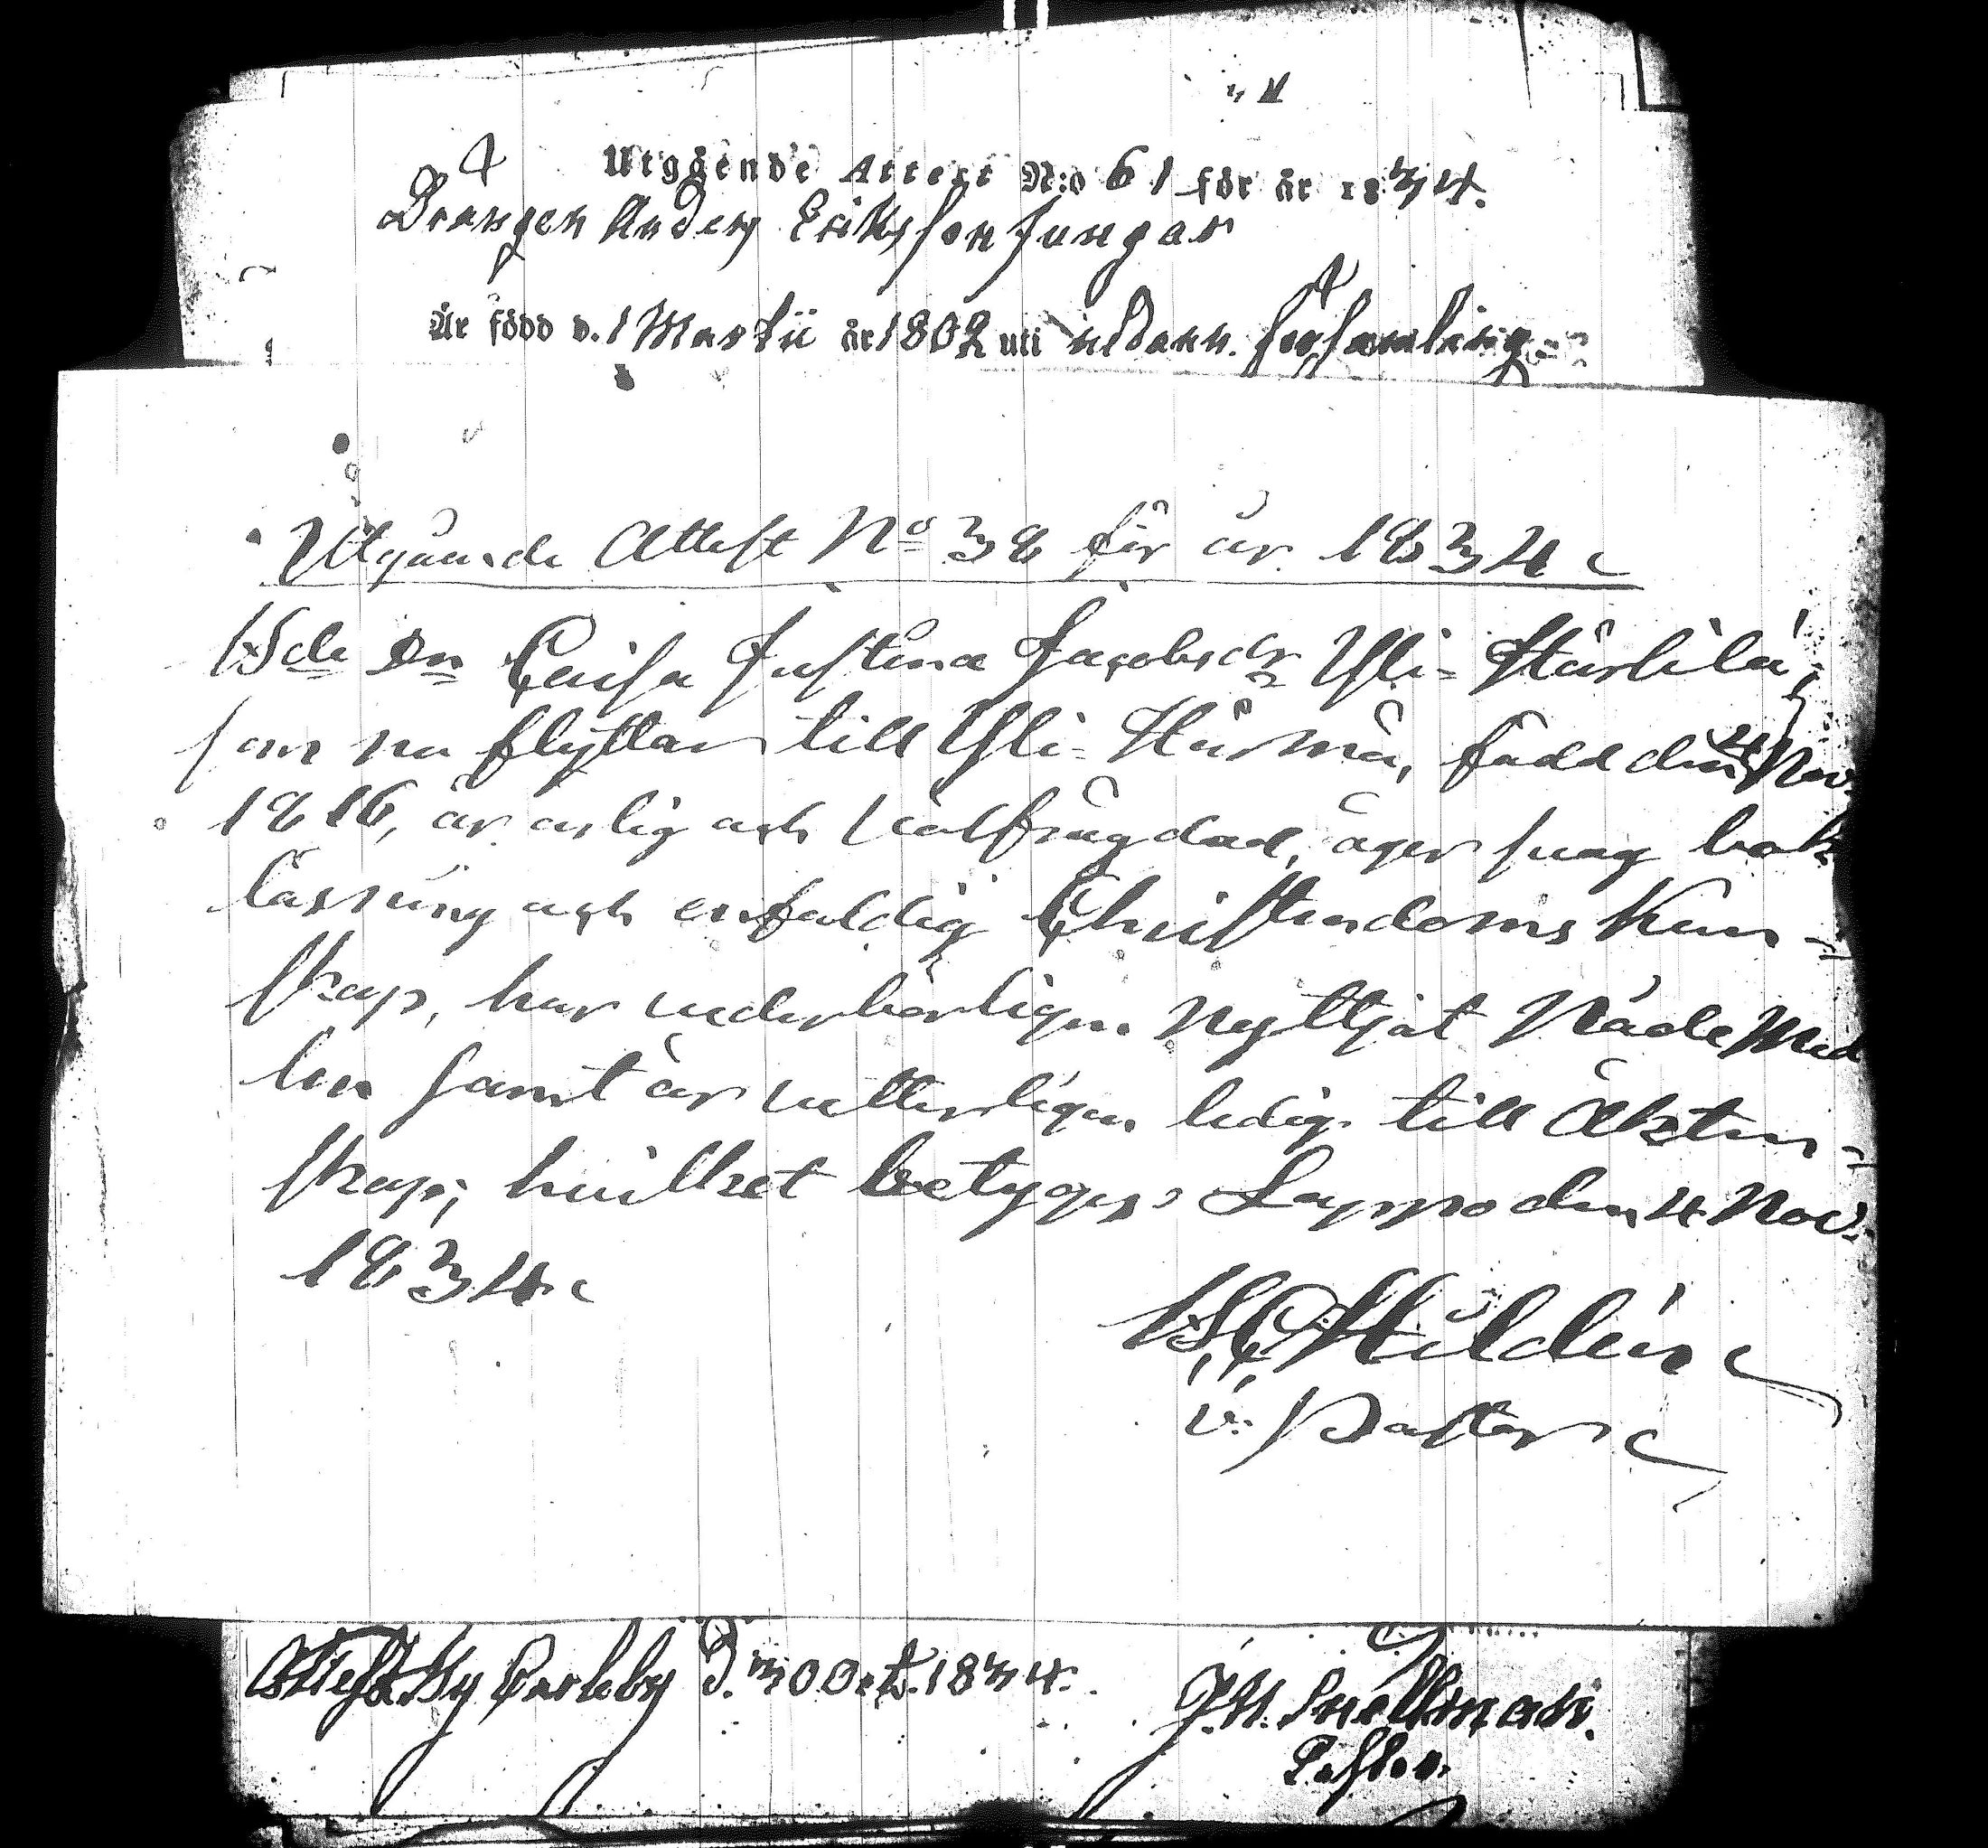 Utgående Attest N:o 61 för år 1834.
Drängen Anders Eriksson Jungar
Är född d. 1 Martii år 1802 uti nedann. församling
Utgående Attest No 38 för år 1834
Bde Dn Caisa Justina Jacobsdr Yli-Härsilä,
som nu flyttar till Yli-Härmä, född den 4 Nov.
1816, är ärlig och välfrägdad, äger svag bok
läsning och enfaldig Christendoms Kun-
skap, har vederbörligen Nyttjat Nåde Med
len samt är vetterligen ledig till Äkten-
skap; hvilket betygas Lappo den 4 Nov.
1834
Hildén
v. Pastor
Attest. Ny Carleby d. 30 Oct. 1834.
J.H. Snellman.
Pastor.